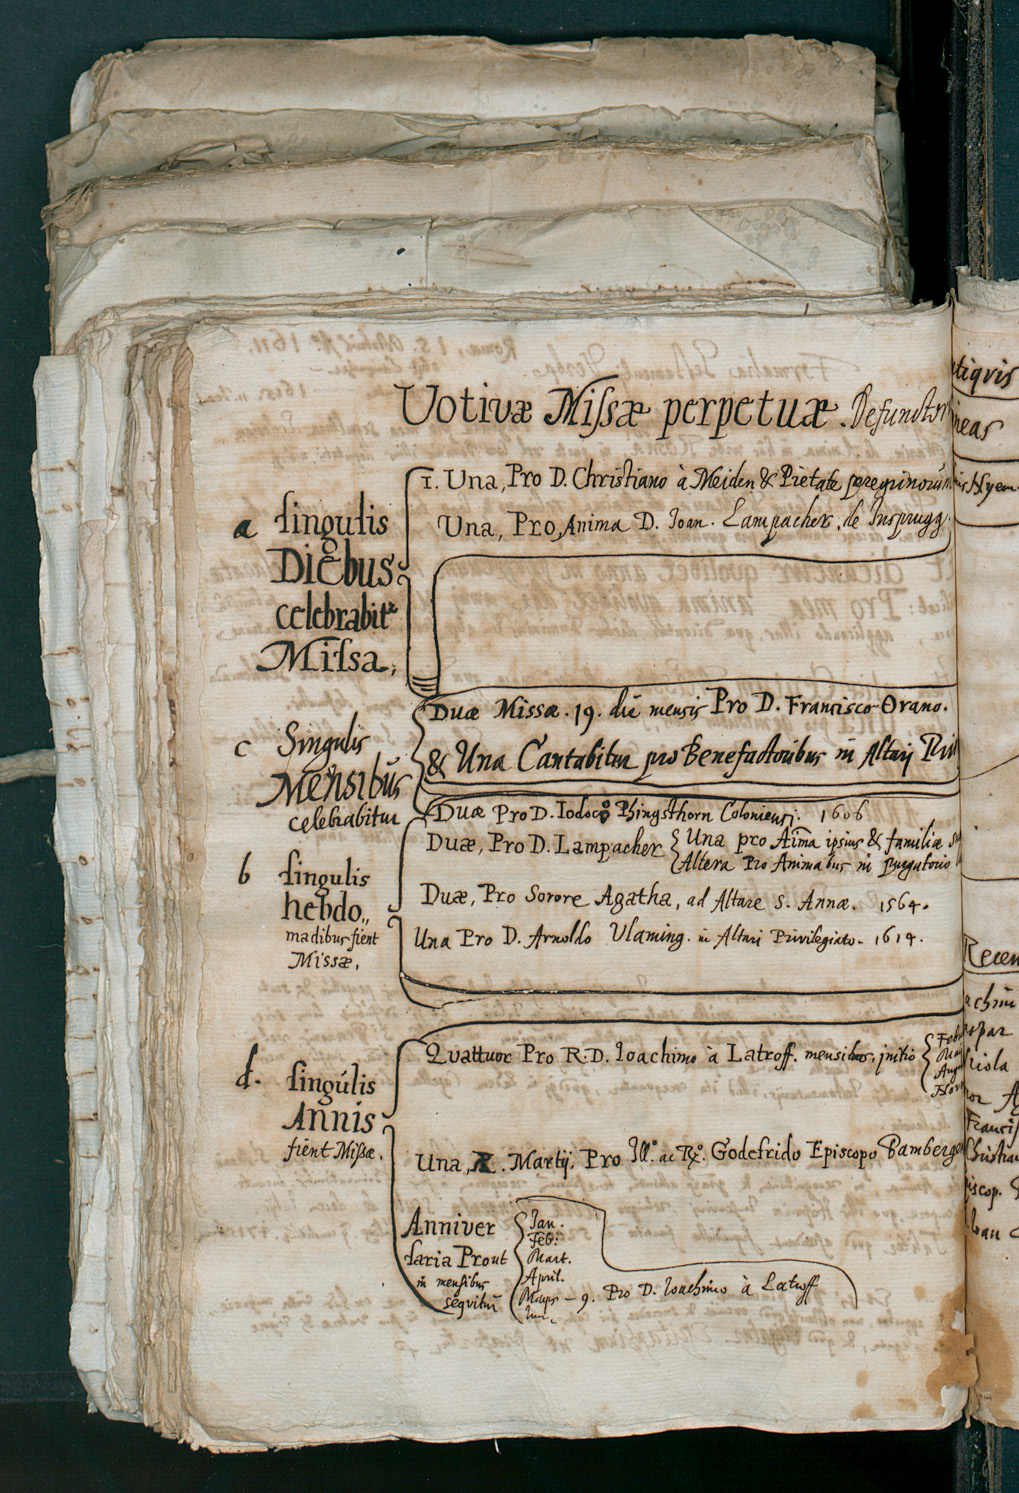 Votivæ Missæ perpetuæ. Defunctor
a singulis
Diebus
celebrabitr
Missa,
1. Una, Pro D. Christiano à Meiden & Pietate peregrinorū
Una, Pro Anima D. Ioan. Lampacher de Insprugg
c Singulis
Mensibus
celebrabitur
Duæ Missæ . 19. die mensis Pro D. Francisco Orano.
& Una Cantabitur pro Benefactoribus in Altari Pri
Duæ Pro D. Iodoco Phingsthorn Coloniensi. 1606
b singulis
hebdo,,
madibus fient
Missæ,
Duæ, Pro D. Lampacher
Una pro Aīma ipsius & familiæ
Altera Pro Animabus in purgatorio
Duæ, Pro Sorore Agatha, ad Altare S. Annæ. 1564.
Una Pro D. Arnoldo Vlaming. in Altari Privilegiato. 1614.
d. singulis
Annis
fient Missæ.
Quattuor Pro R. D. Ioachimo à Latroff. mensibus initio
Feb
Aug
Una, . Martij, Pro Ill. ac Rx. Godefrido Episcopo Bamberge
Anniver
saria Prout
in mensibus
sequitur
Jan.
Feb:
Mart.
April.
Majus – 9. Pro D. Ioachimo à Latroff
Iuni.
tiqvis
neas
Recen
achim
spar
riola
Francis
Christia
piscop.